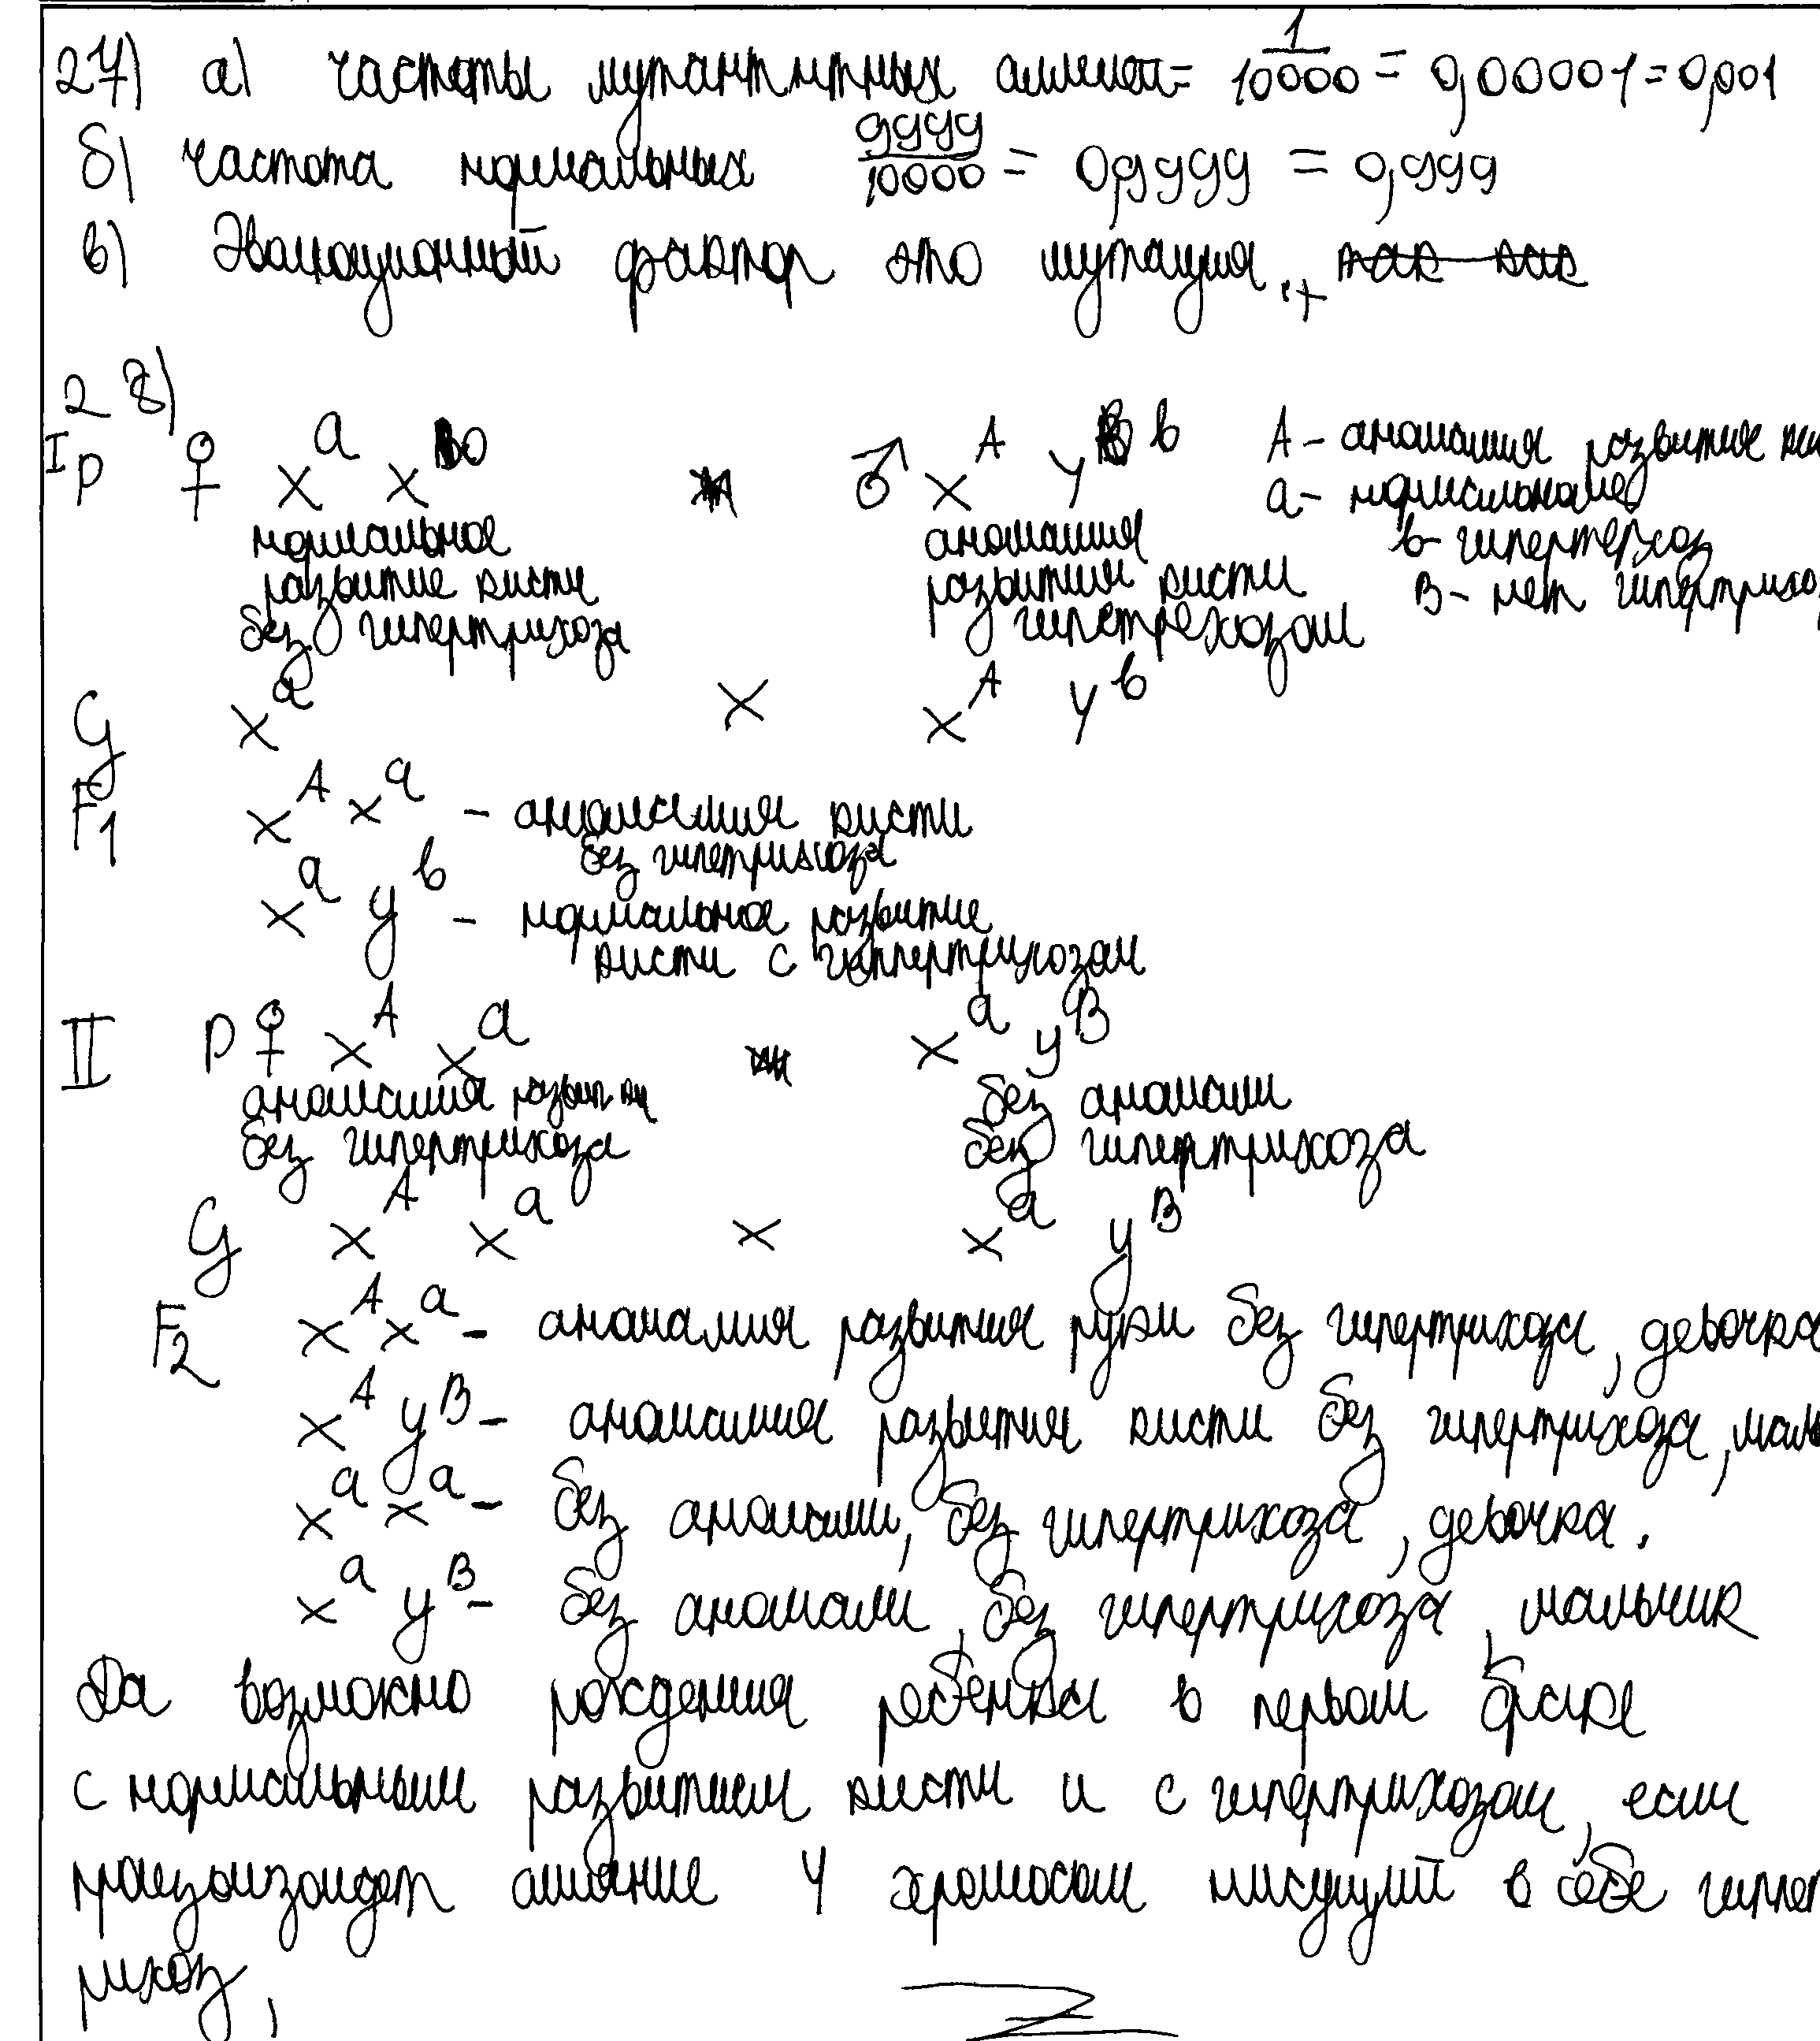 27) а) частоты мутантнтных аллелей = 1/10000 = 0,00001 = 0,001
б) частота нормальных 9999/10000 = 0,9999 = 0,999
в) Эвалюционный фактор это мутация,
28)
I P ♀ X^a X^a ♂ X^A Y^b A - аномалия развитие
a - нормальное
нормальное аномалия b - гипертерхоз
развитие кисти развития кисти B - нет гипертрихо
без гипертрихоза гипетрехозом
G X^a × X^A Y^b
F1 X^A X^a - аномалия кисти
без гипетрихоза
X^a Y^b - нормальное развитие
кисти с гиппертрихозом
II P ♀ X^A X^a X^a Y^B
аномалия развит ки без аномали
без гипертрихоза без гипертрихоза
G X^A X^a × X^a Y^B
F2 X^A X^a - анамалия развития руки без гипертрихоза, девочка
X^A Y^B - аномалия развития кисти без гипертрихоза, маль
X^a X^a - без аномалии, без гипертрихоза, девочка.
X^a Y^B - без аномали, без гипертрихоза, мальчик
Да возможно рождения ребенка в первом браке
с нормальным развитием кисти и с гипертрихозом, если
произойдет слияние Y хромосом нисущий в себе гиппер
рихоз,